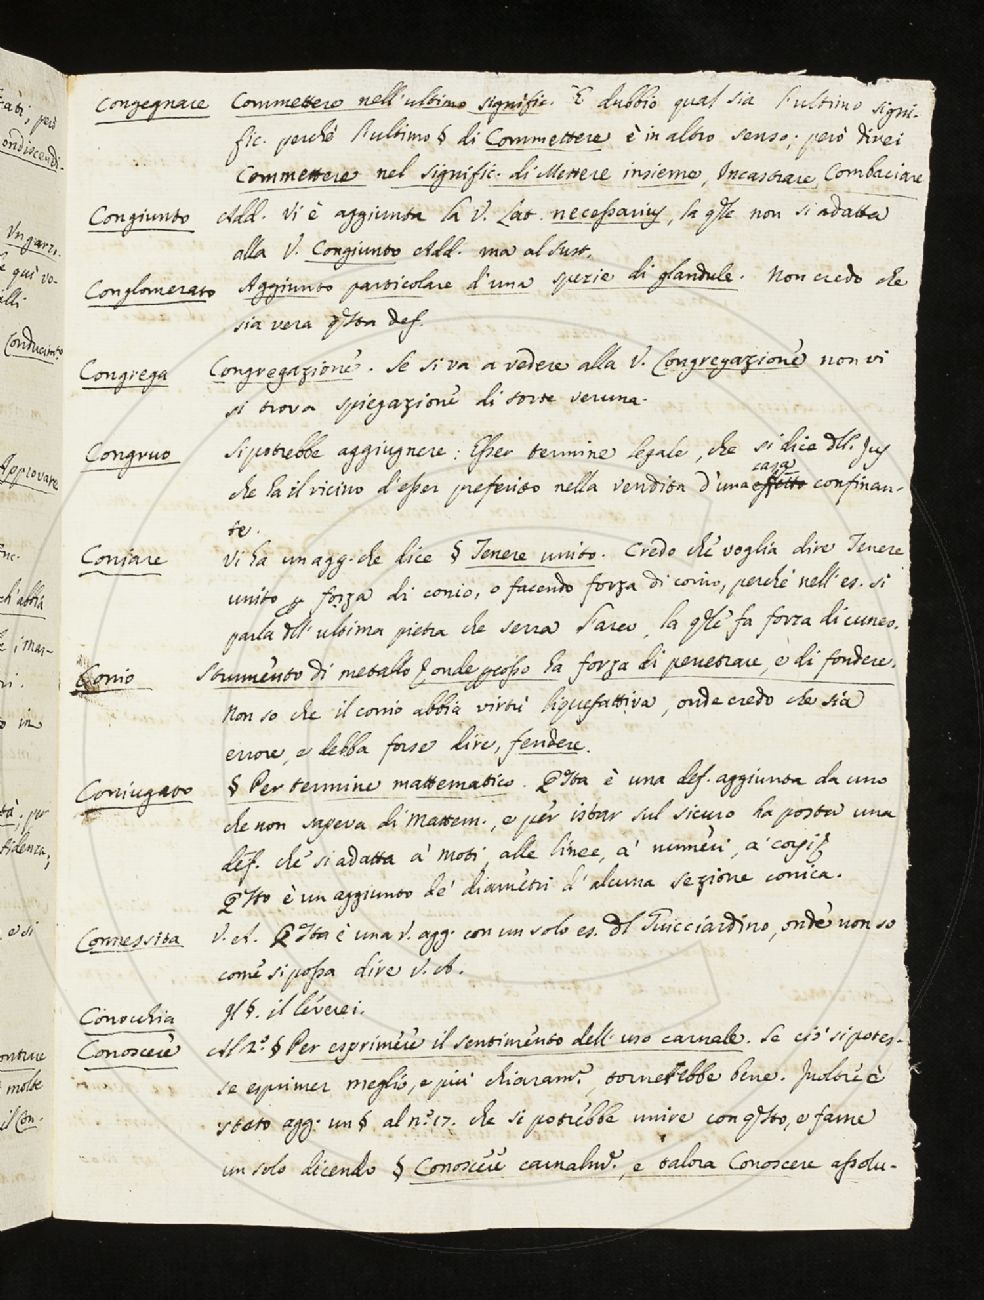 Congegnare Commettere nell'ultimo signific. È dubbio qual sia l'ultimo signi-
fic. perchè l'ultimo § di Commettere è in altro senso; però direi
Commettere nel signific. di Mettere insieme, Incastrare, Combaciare
Congiunto Add. Vi è aggiunta la V. Lat. necessarius, la qle non si adatta
alla V. Congiunto Add. ma al Sust.
Conglomerato Aggiunto particolare d'una spezie di glandule. Non credo che
sia vera qsta def.
Congrega Congregazione. Se si va a vedere alla V. Congregazione non vi
si trova spiegazione di sorte veruna.
Congruo Si potrebbe aggiugnere: Esser termine legale, che si dice dll. Jus
che ha il vicino d'esser preferito nella vendita d'una effetto casa confinan-
te.
Coniare Vi ha un agg. che dice § Tenere unito. Credo che voglia dire Tenere
unito p forza di conio, o facendo forza di conio, perchè nell'es. si
parla dll'ultima pietra che serra l'arco, la qle fa forza di cuneo.
Conio Strumento di metallo onde percosso ha forza di penetrare, e di fondere.
Non so che il conio abbia virtù liquefattiva, onde credo che sia
errore, e debba forse dire, fendere.
Coniugato § Per termine mattematico. Qsta è una def. aggiunta da uno
che non sapeva di Mattem., e per istar sul sicuro ha posta una
def. che si adatta a' moti, alle linee, a' numeri, a' corpi
Qsto è un aggiunto de' diametri d'alcuna sezione conica.
Connessita V. A. Qsta è una V. agg. con un solo es. dl Guicciardino, onde non so
come si possa dire V. A.
Conocchia Il §. il leverei.
Conoscere Al 2.° § Per esprimere il sentimento dell'uso carnale. Se ciò si potes-
se esprimer meglio, e più chiaram.e, tornerebbe bene. Inoltre è
stato agg. un § al n.° 17. che si potrebbe unire con qsto, e farne
un solo dicendo § Conoscere carnalm.e, e talora Conoscere assolu-